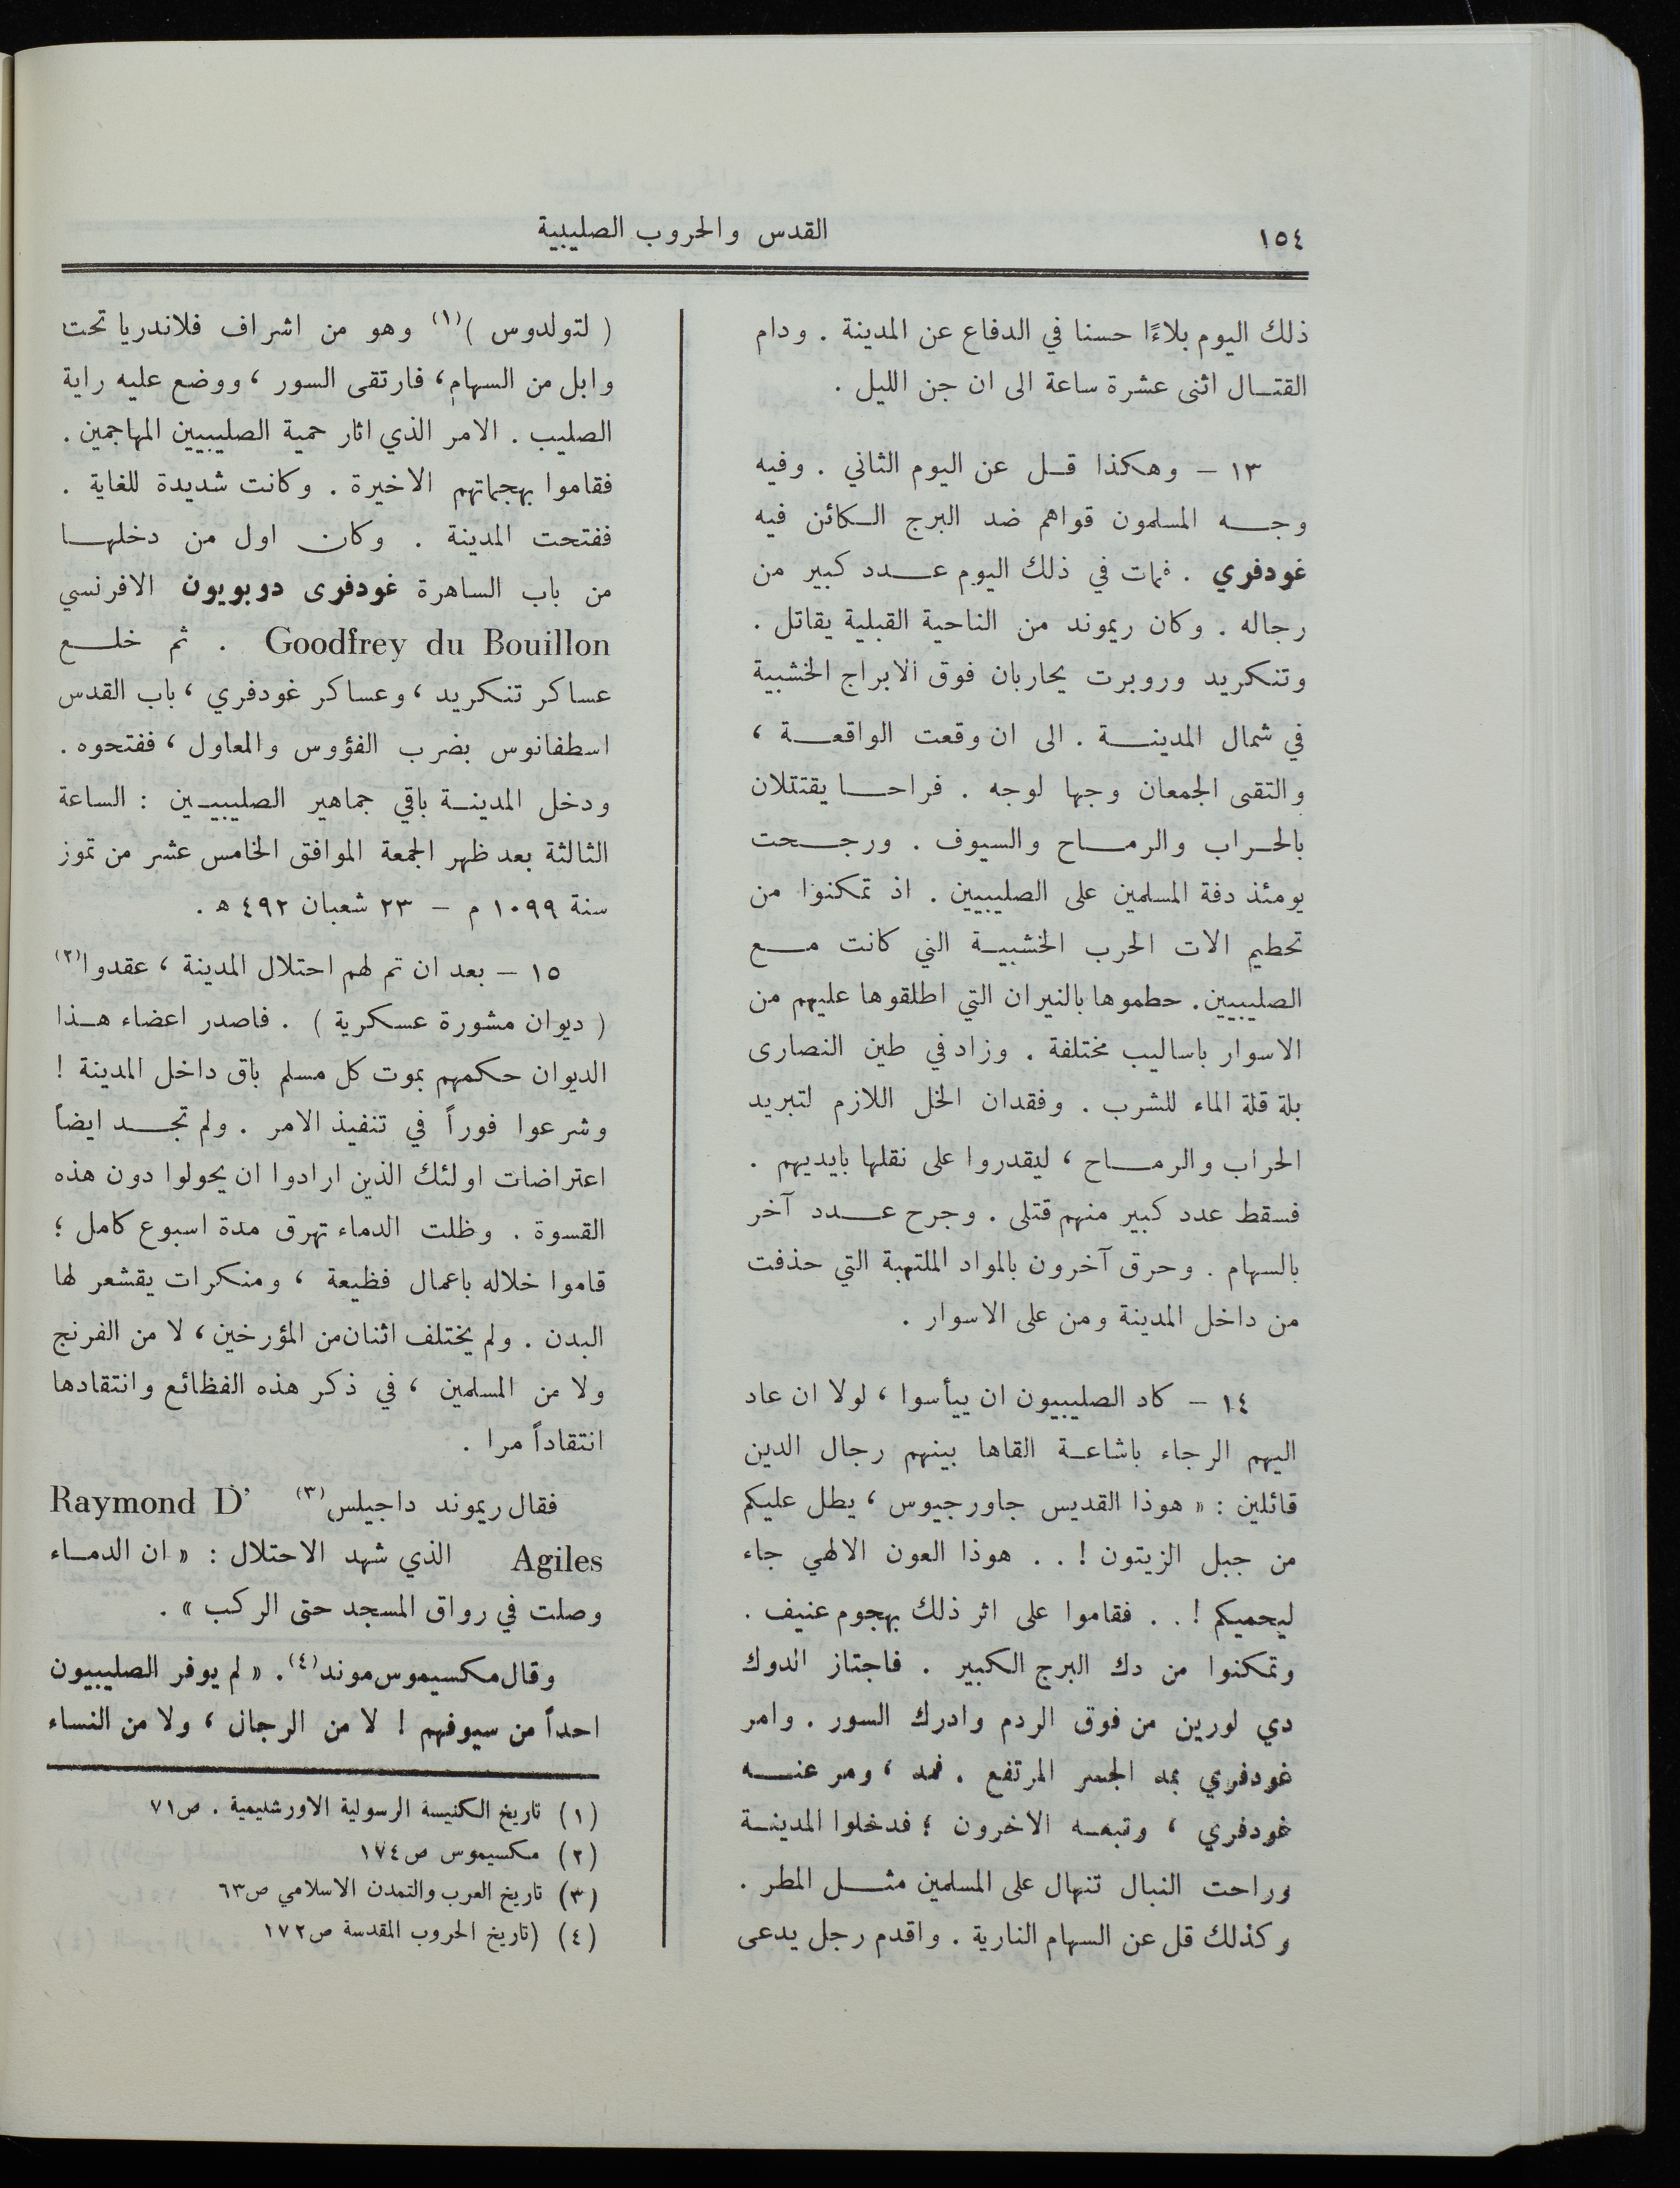 ١٥٤
القدس والحروب الصليبية
ذلك اليوم بلاءًا حسنا في الدفاع عن المدينة . ودام
القتــال اثنى عشرة ساعة الى ان جن الليل .
١٣ – وهكذا قــل عن اليوم الثاني . وفيه
وجــه المسلمون قواهم ضد البرج الـكائن فيه
غودفري . فمات في ذلك اليوم عــدد كبير من
رجاله . وكان ريموند من الناحية القبلية يقاتل .
وتنكريد وروبرت يحاربان فوق الابراج الخشبية
في شمال المدينــة . الى ان وقعت الواقعــة ،
والتقى الجمعان وجها لوجه . فراحــا يقتتلان
بالحــراب والرمــاح والسيوف . ورجــحت
يومئذ دفة المسلمين على الصليبيين . اذ تمكنوا من
تحطيم الات الحرب الخشبيــة التي كانت مــع
الصليبيين. حطموها بالنيران التي اطلقوها عليهم من
الاسوار باساليب مختلفة . وزاد في طين النصارى
بلة قلة الماء للشرب . وفقدان الخل اللازم لتبريد
الحراب والرمــاح ، ليقدروا على نقلها بايديهم .
فسقط عدد كبير منهم قتلى . وجرح عــدد آخر
بالسهام . وحرق آخرون بالمواد الملتهبة التي حذفت
من داخل المدينة ومن على الاسوار .
١٤ – كاد الصليبيون ان ييأسوا ، لولا ان عاد
اليهم الرجاء باشاعــة القاها بينهم رجال الدين
قائلين : « هوذا القديس جاورجيوس ، يطل عليكم
من جبل الزيتون ! . . هوذا العون الالهي جاء
ليحميكم ! . . فقاموا على اثر ذلك بهجوم عنيف .
وتمكنوا من دك البرج الكبير . فاجتاز الدوك
دي لورين من فوق الردم وادرك السور . وامر
غودفري بمد الجسر المرتفع . فمد ، ومر عنــه
غودفري ، وتبعــه الاخرون ؛ فدخلوا المدينــة
وراحت النبال تنهال على المسلمين مثــل المطر .
وكذلك قل عن السهام النارية . واقدم رجل يدعى
( لتولدوس )(١) وهو من اشراف فلاندريا تحت
وابل من السهام، فارتقى السور ، ووضع عليه راية
الصليب . الامر الذي اثار حمية الصليبيين المهاجمين .
فقاموا بهجماتهم الاخيرة . وكانت شديدة للغاية .
ففتحت المدينة . وكان اول من دخلهــا
من باب الساهرة غودفرى دوبويون الافرنسي
Goodfrey du Bouillon . ثم خلــع
عساكر تنكريد ، وعساكر غودفري ، باب القدس
اسطفانوس بضرب الفؤوس والمعاول ، ففتحوه .
ودخل المدينــة باقي جماهير الصليبيــين : الساعة
الثالثة بعد ظهر الجمعة الموافق الخامس عشر من تموز
سنة ١٠٩٩ م – ٢٣ شعبان ٤٩٢ ﻫ .
١٥ – بعد ان تم لهم احتلال المدينة ، عقدوا(٢)
( ديوان مشورة عسكرية ) . فاصدر اعضاء هــذا
الديوان حكمهم بموت كل مسلم باق داخل المدينة !
وشرعوا فوراً في تنفيذ الامر . ولم تجــد ايضاً
اعتراضات اولئك الذين ارادوا ان يحولوا دون هذه
القسوة . وظلت الدماء تهرق مدة اسبوع كامل ؛
قاموا خلاله باعمال فظيعة ، ومنكرات يقشعر لها
البدن . ولم يختلف اثنان من المؤرخين ، لا من الفرنج
ولا من المسلمين ، في ذكر هذه الفظائع وانتقادها
انتقاداً مرا .
فقال ريموند داجيلس(٣) Raymond D'
Agiles الذي شهد الاحتلال : « ان الدمــاء
وصلت في رواق المسجد حتى الركب » .
وقال مكسيموس موند(٤). « لم يوفر الصليبيون
احداً من سيوفهم ! لا من الرجال ، ولا من النساء
(١) تاريخ الكنيسة الرسولية الاورشليمية . ص٧١
(٢) مكسيموس ص١٧٤
(٣) تاريخ العرب والتمدن الاسلامي ص٦٣
(٤) (تاريخ الحروب المقدسة ص١٧٢